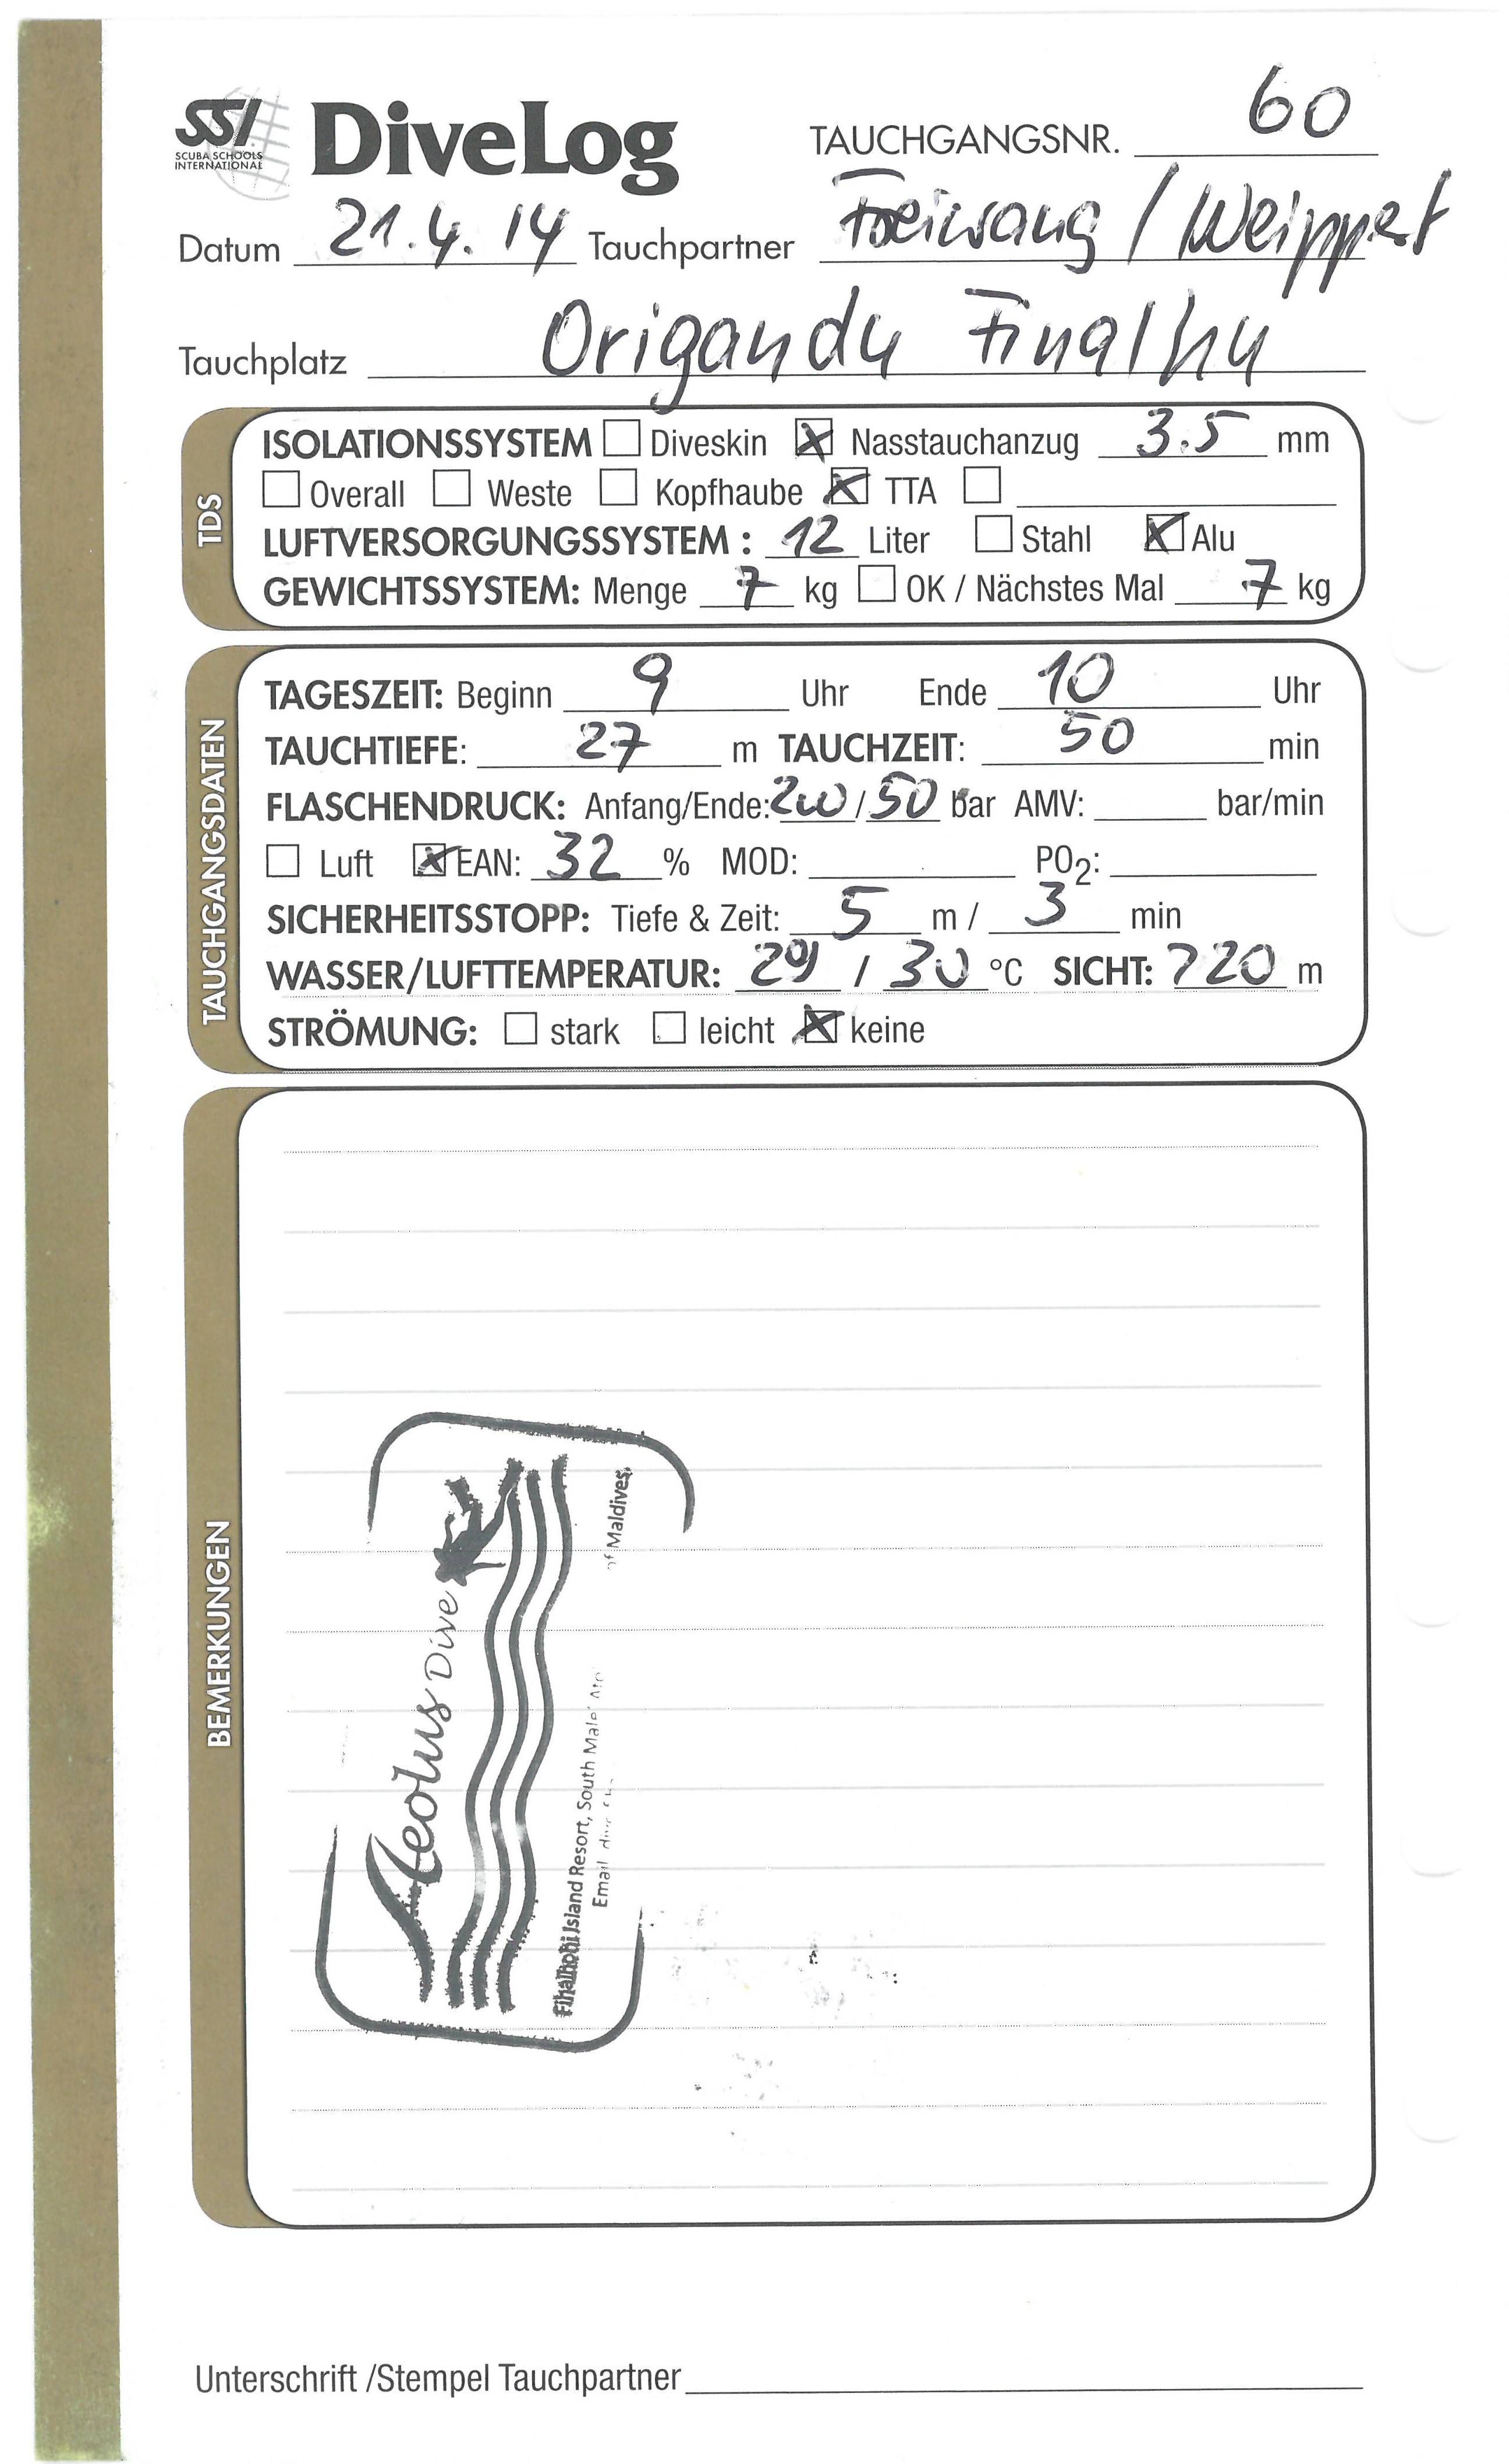 SSI
SCUBA SCHOOLS
INTERNATIONAL
DiveLog
TAUCHGANGSNR. 60
Datum 21.4.14 Tauchpartner Freiwang / Weippert
Tauchplatz Origandu Finalhu
TDS
ISOLATIONSSYSTEM ☐ Diveskin ☒ Nasstauchanzug 3.5 mm
☐ Overall ☐ Weste ☐ Kopfhaube ☒ TTA ☐
LUFTVERSORGUNGSSYSTEM : 12 Liter ☐ Stahl ☒ Alu
GEWICHTSSYSTEM: Menge 7 kg ☐ OK / Nächstes Mal 7 kg
TAUCHGANGSDATEN
TAGESZEIT: Beginn 9 Uhr Ende 10 Uhr
TAUCHTIEFE: 27 m TAUCHZEIT: 50 min
FLASCHENDRUCK: Anfang/Ende: 200/50 bar AMV: bar/min
☐ Luft ☒ EAN: 32 % MOD: PO2:
SICHERHEITSSTOPP: Tiefe & Zeit: 5 m / 3 min
WASSER/LUFTTEMPERATUR: 29 / 30 °C SICHT: 720 m
STRÖMUNG: ☐ stark ☐ leicht ☒ keine
BEMERKUNGEN
Aeolus Dive
Fihalhohi Island Resort, South Male' of Maldives.
Email
Unterschrift /Stempel Tauchpartner